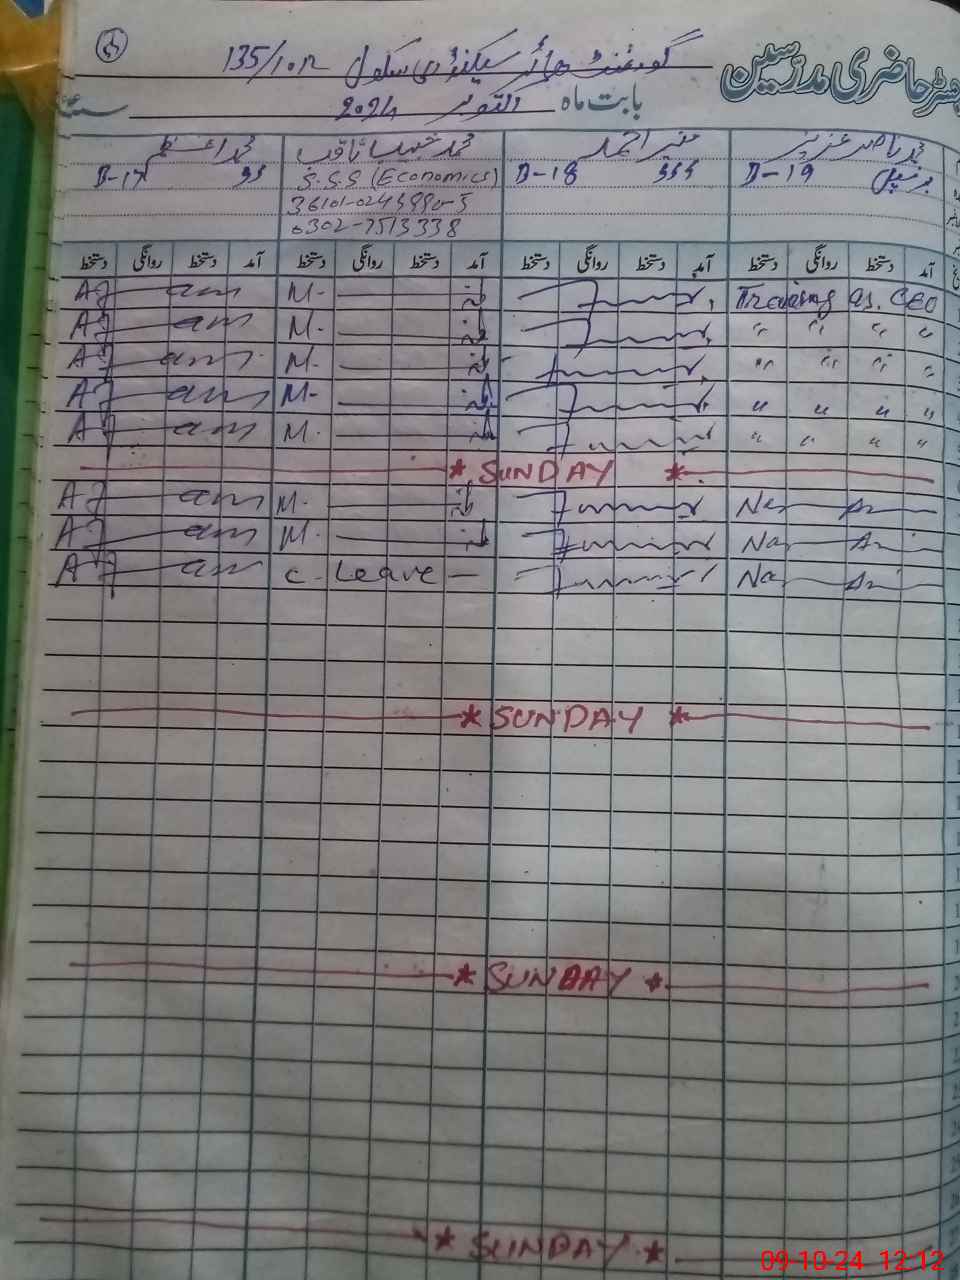 گورنمنٹ ہائر سیکنڈری سکول 135/10R
رجسٹر حاضری مدرسین
بابت ماہ اکتوبر 2024
محمد ناصر عزیز منیر احمد محمد حبیب ثاقب محمد اعظم
پرنسپل B-19 SSS B-18 S.S.S (Economics) SS B-17
0302-7513338
آمد دستخط روانگی دستخط آمد دستخط روانگی دستخط آمد دستخط روانگی دستخط آمد دستخط روانگی دستخط
AJ am M. as. CEO
AJ am M. " " " "
AJ am M. " " " "
AJ am M. " " " "
AJ am M. " " " "
* SUNDAY *
AJ am M.
AJ am M.
AJ am C. Leave —
* SUNDAY *
* SUNDAY *
* SUNDAY *
09-10-24 12:12